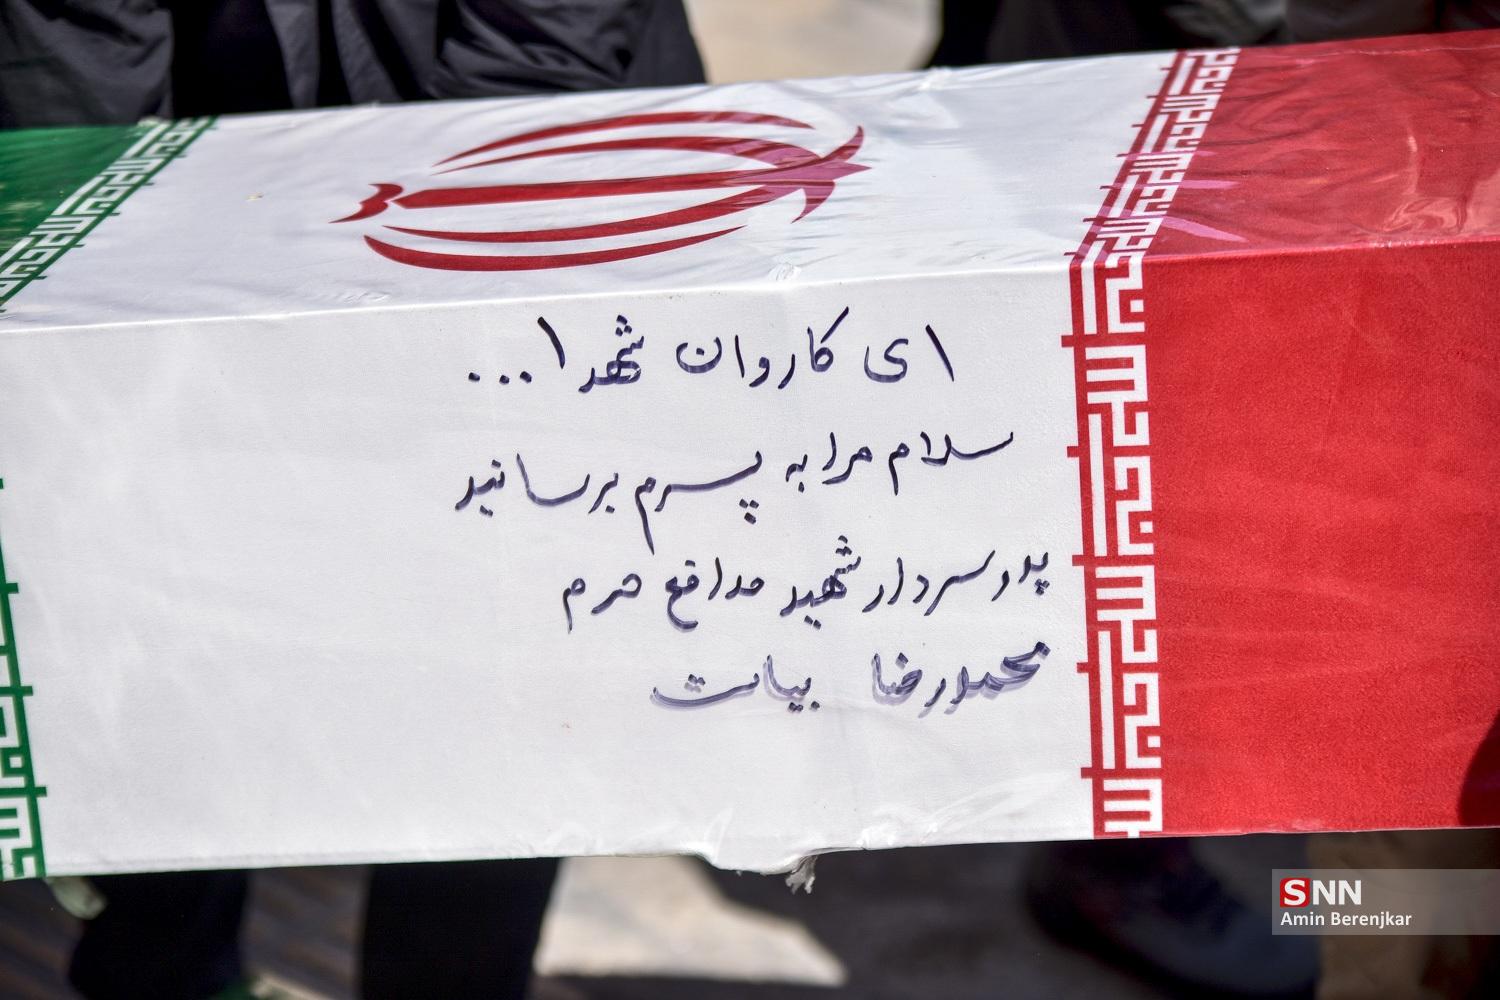 ای کاروان شهدا...
سلام مرا به پسرم برسانید
پدر سردار شهید مدافع حرم
محمدرضا بیات
SNN
Amin Berenjkar